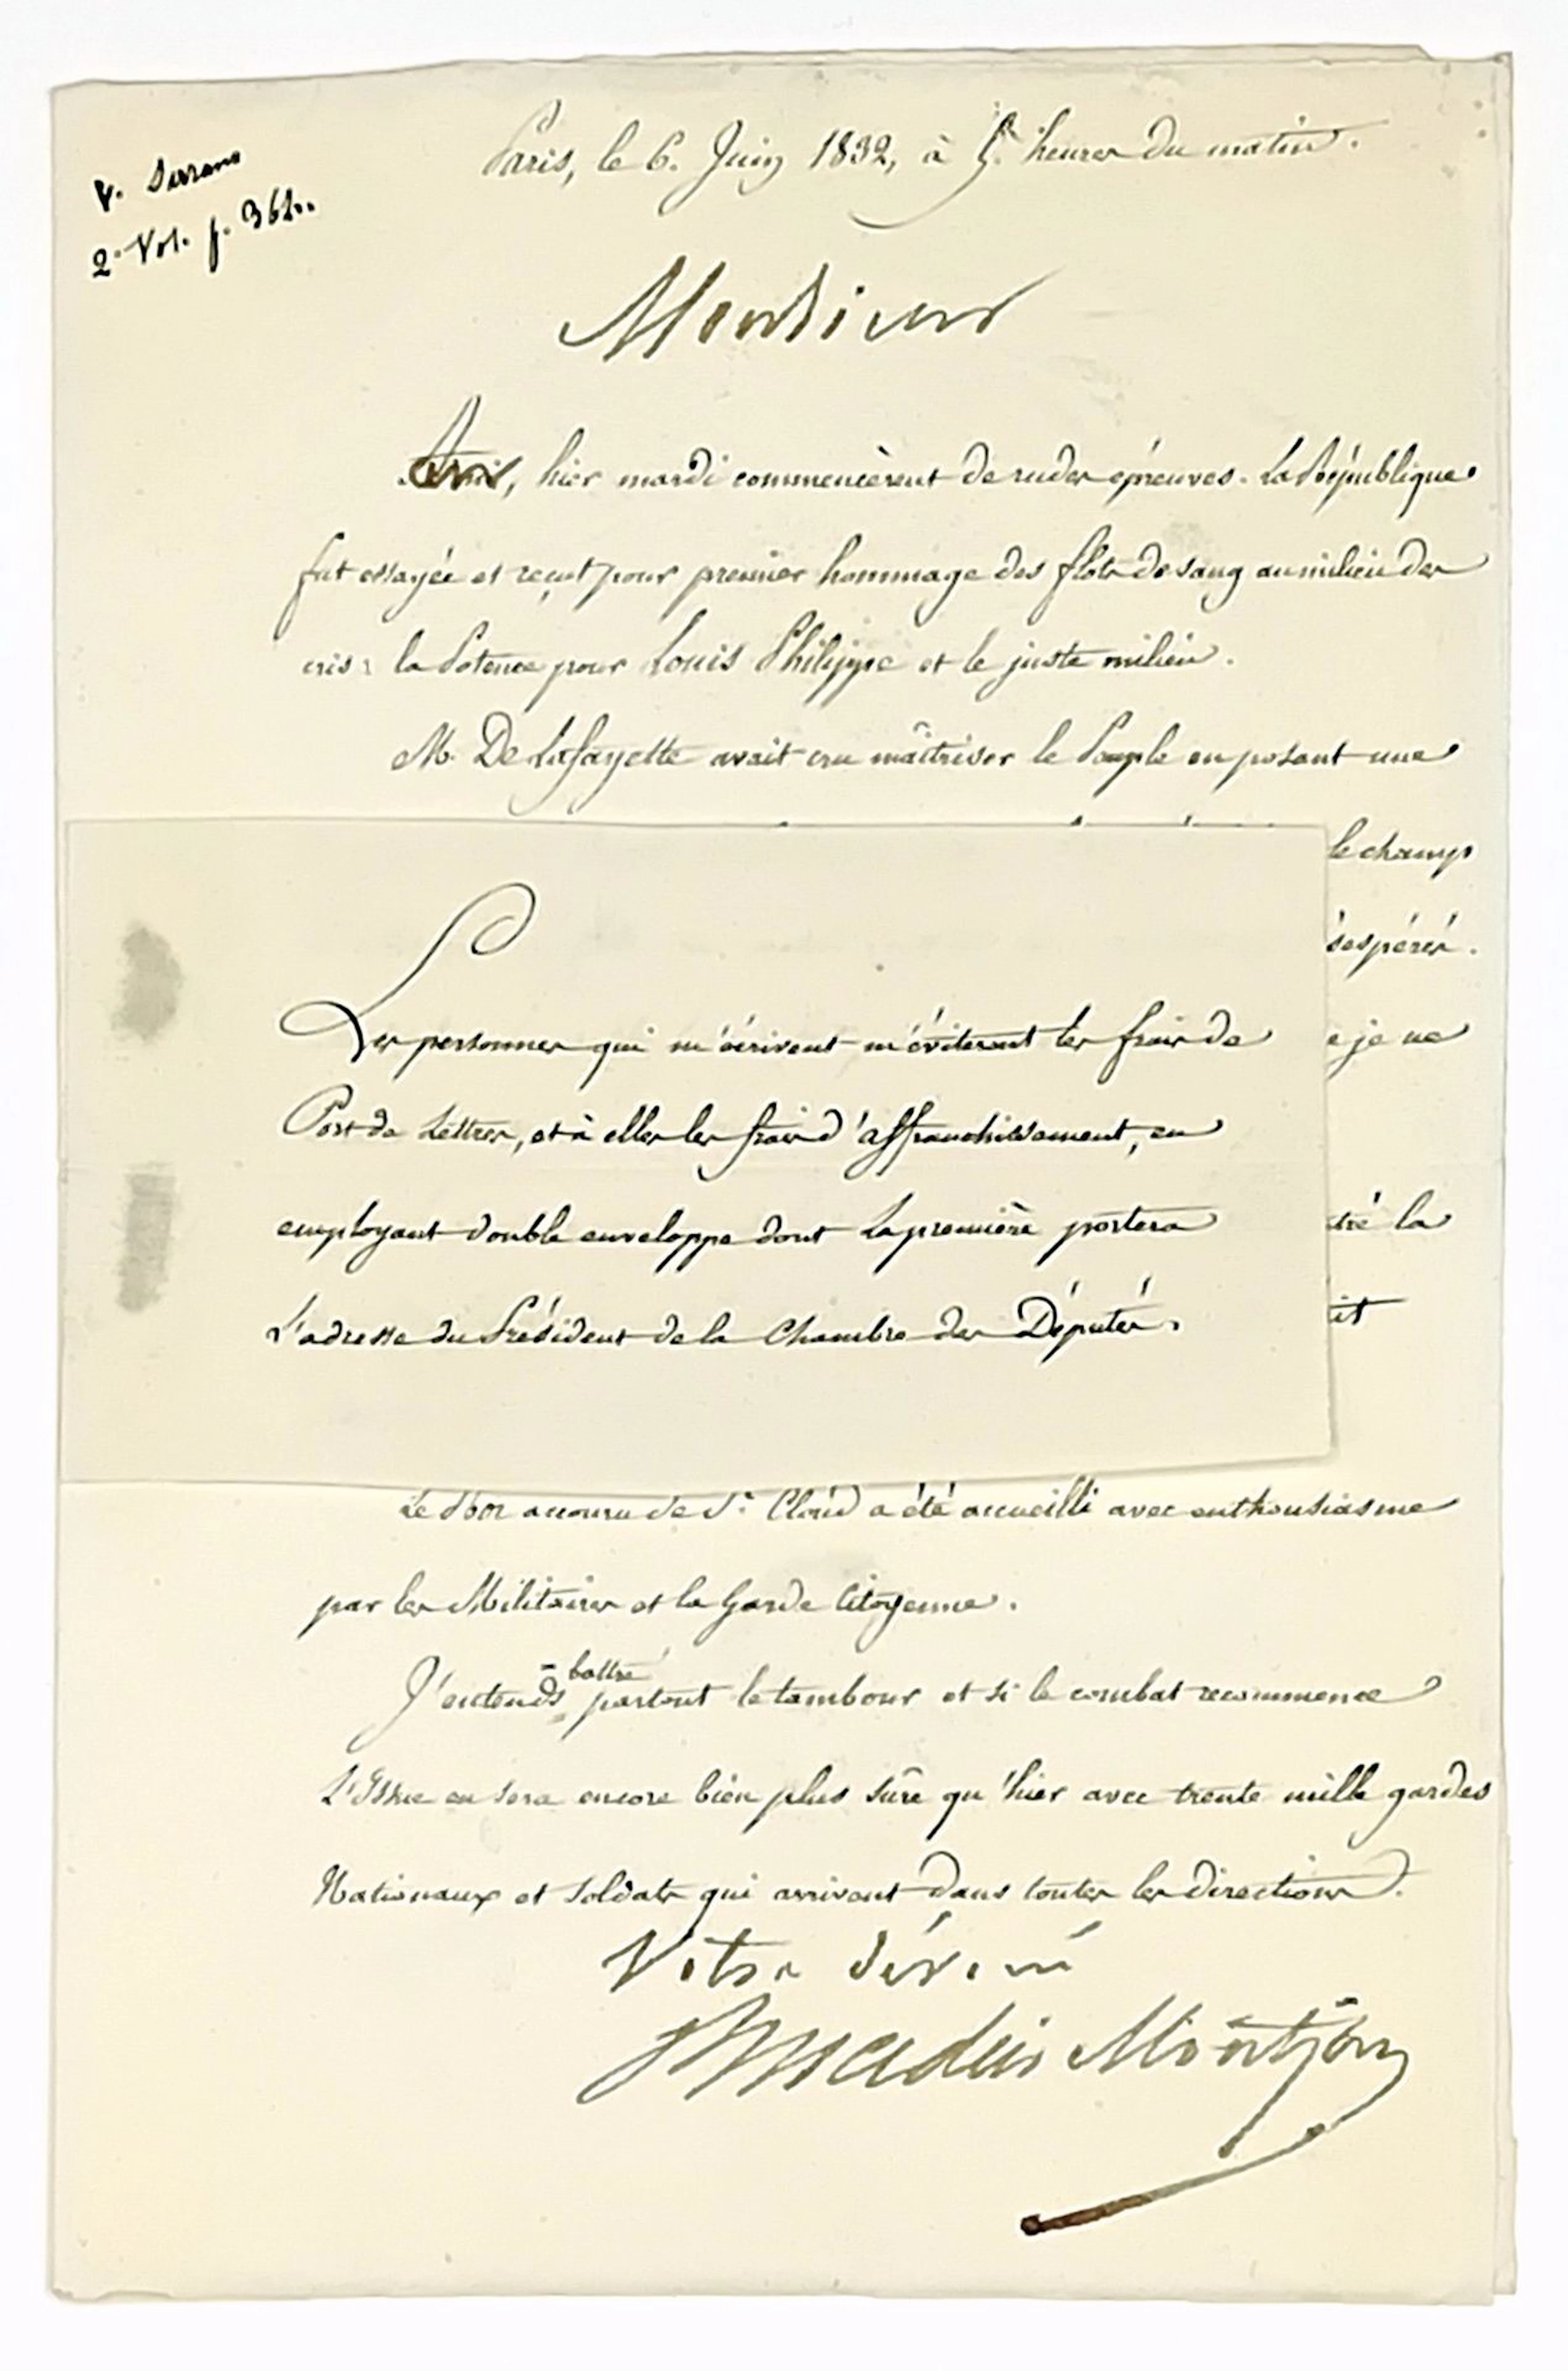 V. Sarrans
2e Vol. p. 362.
Paris, le 6. Juin 1832, à 5 heures du matin.
Monsieur
hier mardi commencèrent de rudes épreuves. La République
fut essayée et reçut pour premier hommage des flots de sang au milieu des
cris: la Potence pour Louis Philippe et le juste milieu.
M. De Lafayette avait cru maîtriser le Peuple en posant une
le champ
ésespérés.
e je ne
tré la
it
Les personnes qui m'écrivent m'éviteront les frais de
Port de Lettres, et à elles les frais d'affranchissement, en
employant double enveloppe dont la première portera
L'adresse du Président de la Chambre des Députés.
Le Roi accouru de St. Cloud a été accueilli avec enthousiasme
par les Militaires et la Garde Citoyenne.
J'entends battre partout le tambour et si le combat recommence
L'Issue en sera encore bien plus sûre qu'hier avec trente mille gardes
Nationaux et soldats qui arrivent dans toutes les directions.
Votre dévoué
Madier Montjau